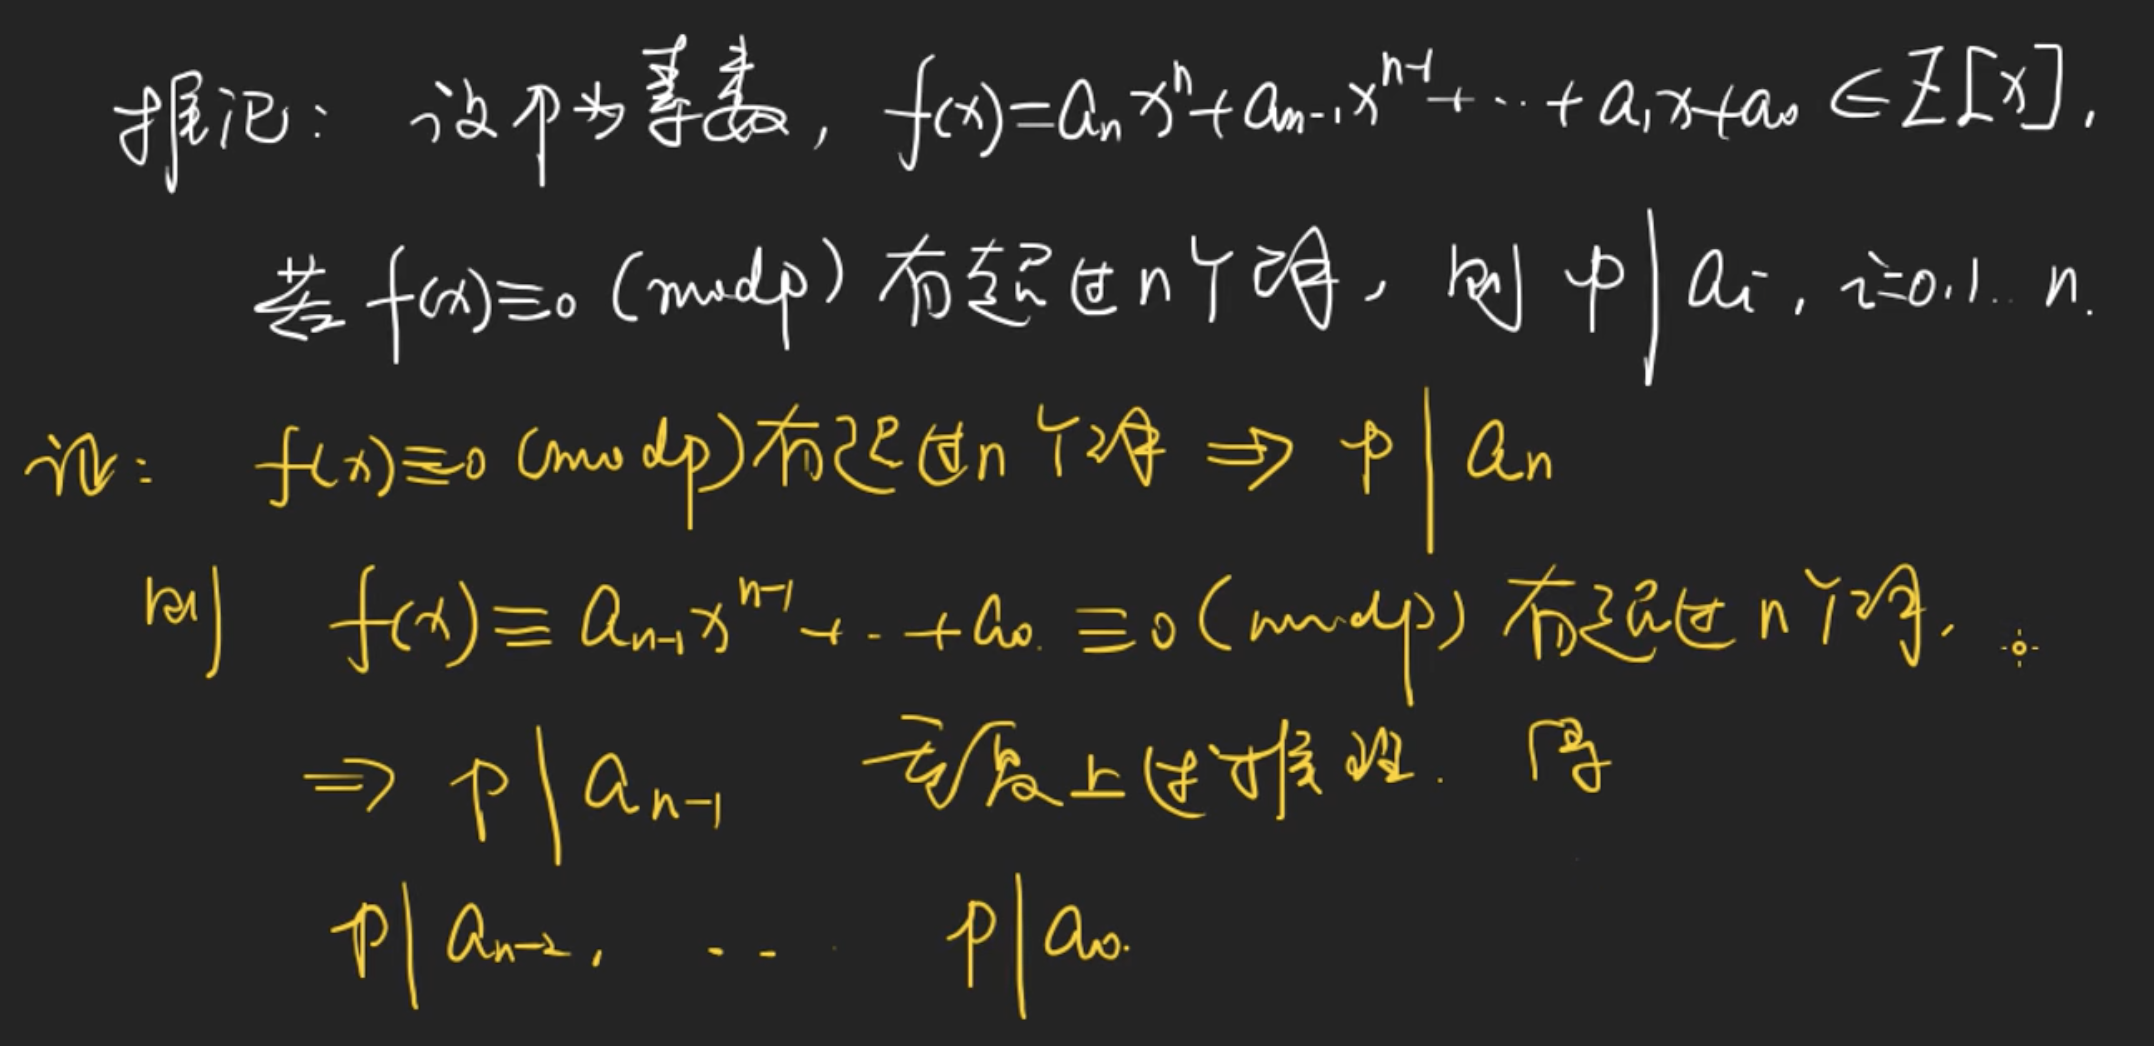 推论: 设p为素数, f(x)=aₙxⁿ+aₙ₋₁xⁿ⁻¹+···+a₁x+a₀∈Z[x],
若f(x)≡0 (mod p) 有超过n个解, 则 p|aᵢ, i=0,1..n.
证: f(x)≡0 (mod p) 有超过n个解 ⇒ p|aₙ
则 f(x)≡aₙ₋₁xⁿ⁻¹+··+a₀.≡0 (mod p) 有超过n个解.
⇒ p|aₙ₋₁ 重复上述推理. 得
p|aₙ₋₂, ··· p|a₀.